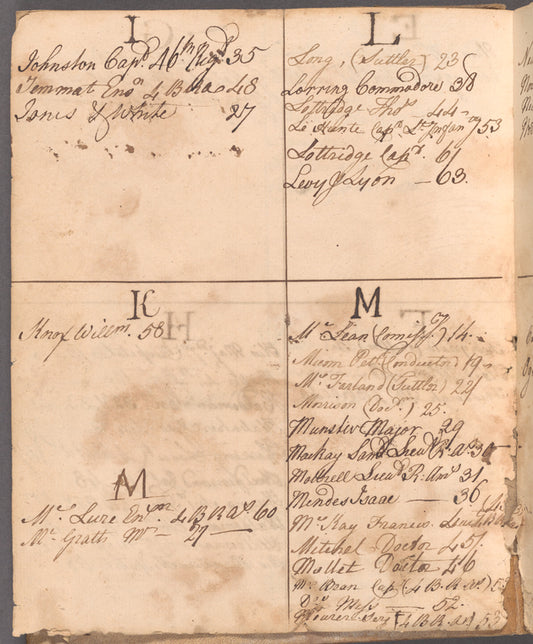 I
Johnston Capt. 46th Regt. 35
Jemmat Ensn. 4 B Ra. 48
Jones & White 27
L
Long, (Suttler) 23
Lorring Commodore 38
Lottridge Thos. 44
Le Hunte Capt. Lt. 53
Lottridge Capt. 61
Levy & Lyon — 63.
K
Knox Willm. 58
M
Mc. Lure Ensn. 4 B R As. 60
Mc. Grath Mr — 29 —
M
Mc. Lean (Comissy.) 14.
Pat. (Conductor) 19
Mc. Farland (Suttlor) 22
Morrison (Doctr.) 25.
Munster Major 29
Mackay Saml. Lieut. R. As. 30
Mottrell Lieut. R. Ams. 31
Mendes Isaac — 36
Mc. Kay Francis Lieut.
Mitchel Doctor 45
Mollet Doctor 46
Mc. Bean Capt. (4 B. R. As.)
Do. Mess — 52
(4 B R As) 53